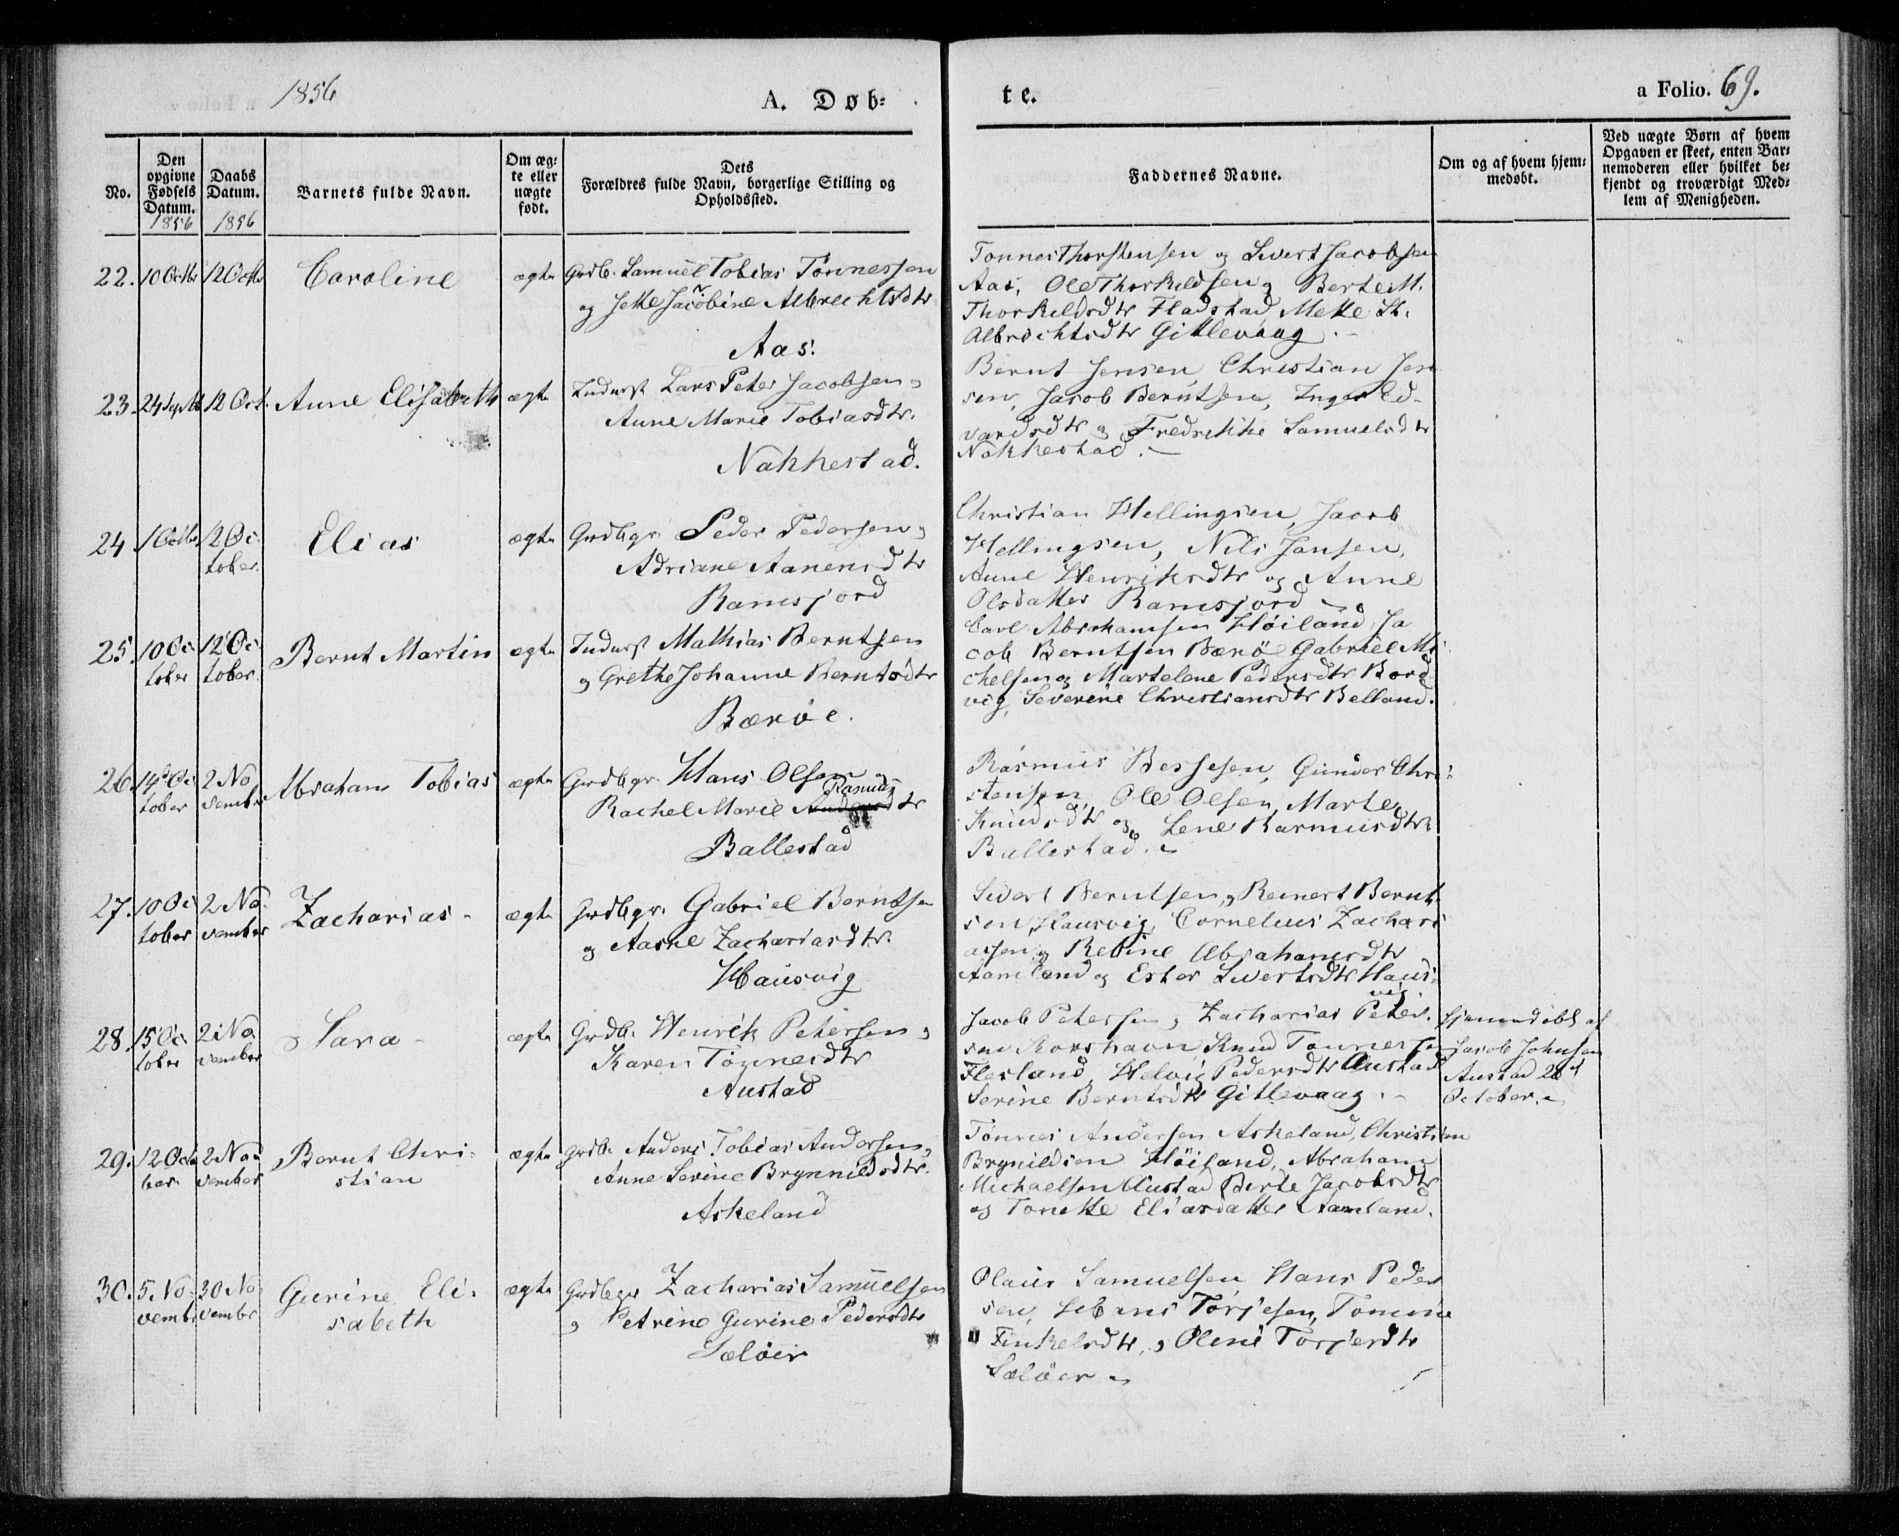 1856
A. Døb=
te.
a Folio. 69.
No.
Den opgivne Fødsels Datum. 1856
Daabs Datum. 1856
Barnets fulde Navn.
Om æg= te eller nægte født.
Dets Forældres fulde Navn, borgerlige Stilling og Opholdssted.
Faddernes Navne.
Om og af hvem hjem= medøbt.
Ved nægte Børn af hvem Opgaven er skeet, enten Bar= nemoderen eller hvilket be= kjendt og troværdigt Med= lem af Menigheden.
22. 10 Octb 12 Octb Caroline ægte Grdb. Samuel Tobias Tönnessen
og Jette Jacobine Albrechtsdtr
Aas.
Tonnes Thorstensen og Sivert Jacobsen
Aas, Ole Thorkildsen og Berte M.
Thorkildsdtr Fladstad Mette K.
Albrechtsdtr Gitlevaag.
23. 24 Septb 12 Oct Anne Elisabeth ægte Inderst Lars Peter Jacobsen og
Anne Marie Tobiasdtr.
Nakkestad.
Bernt Jensen, Christian Jen
sen, Jacob Berntsen, Inger Ed-
vardsdtr og Fredrikke Samuelsdtr
Nakkestad.
24 1 Octb. 12 Oc tober. Elias ægte Grdbgr. Peder Pedersen og
Adriane Aanensdtr
Ramsjord
Christian Hellingsen, Jacob
Hellingsen, Nils Jansen,
Anne Henriksdtr og Anne
Olsdatter Ramsjord
25. 10 Oc tober 12 Oc tober Bernt Martin ægte Inderst Mathias Berntsen
og Grethe Johanne Berntsdtr
Bærøe.
Carl Abrahamsen Höiland, Ja
cob Berntsen Bærö Gabriel Mi
chelsen og Martelene Pedersdtr Bord
vig, Severine Christiansdtr Belland.
26. 14 Oc tober 2 No vember Abraham Tobias ægte Grdbgr. Hans Olsen
Rasmus
Rachel Marie Andersdtr
Ballestad
Rasmus Bessesen, Gunder Chri
stensen, Ole Olsen, Marte
Knudsdtr og Lene Rasmusdtr
Ballestad.
27. 10 Oc tober 2 No vember Zacharias ægte Grdbgr. Gabriel Berntsen
og Aasne Zachariasdtr.
Hausvig
Sivert Berntsen, og Reinert Bernt
sen, Hausvig, Cornelius Zachari
assen og Rebine Abrahamsdtr
Aamland og Ester Sivertsdtr Haus=
vig
28. 15 Oc tober 2 No vember Sara ægte Grdb. Henrik Petersen og
Karen Tönnesdtr
Austad
Jacob Petersen og Zacharias Peter
sen Korshavn, Knud Tönnessen
Flesland, Helvig Pedersdtr Austad
Serine Berntsdtr Gitlevaag.
hjemmedöbt af
Jacob Johnsen
Austad 28d
October.
29. 12 Octo ber 2 No vember Bernt Chri= stian ægte Grdb. Anders Tobias Andersen,
Anne Serine Brynnildsdtr.
Askeland
Tönnes Andersen Askeland, Christian
Brynildsen Höiland, Abraham
Michaelsen Austad Berte Jacobsdtr
og Tonette Eliasdatter Aamland.
30. 5 No vembr 30 No vembr Gurine Eli= sabeth ægte Grdbgr Zacharias Samuelsen
og Petrine Gurine Pedersdtr
Sælöer
Olaus Samuelsen Hans Peder
sen, Hans Tørjesen,
Finkelsdtr, og Oline Torjesdtr
Sælöer